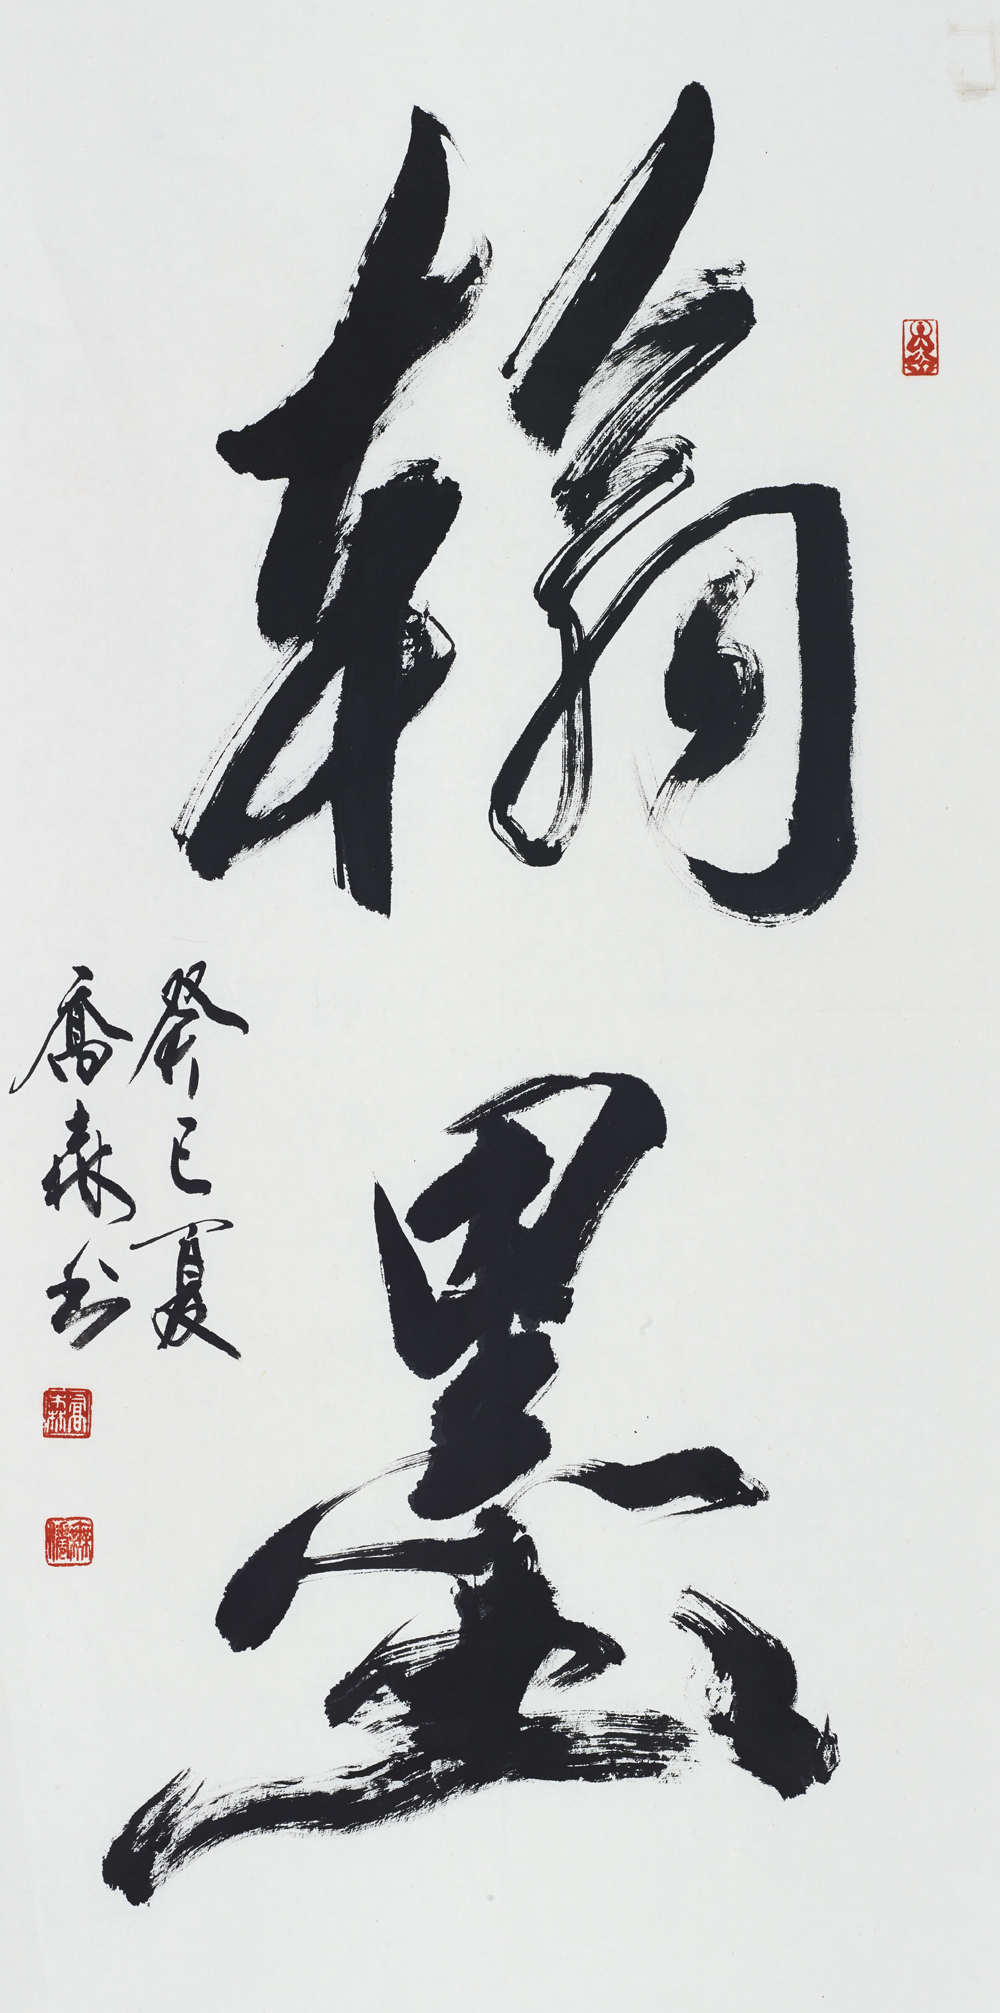 翰墨
癸巳夏
喬森书